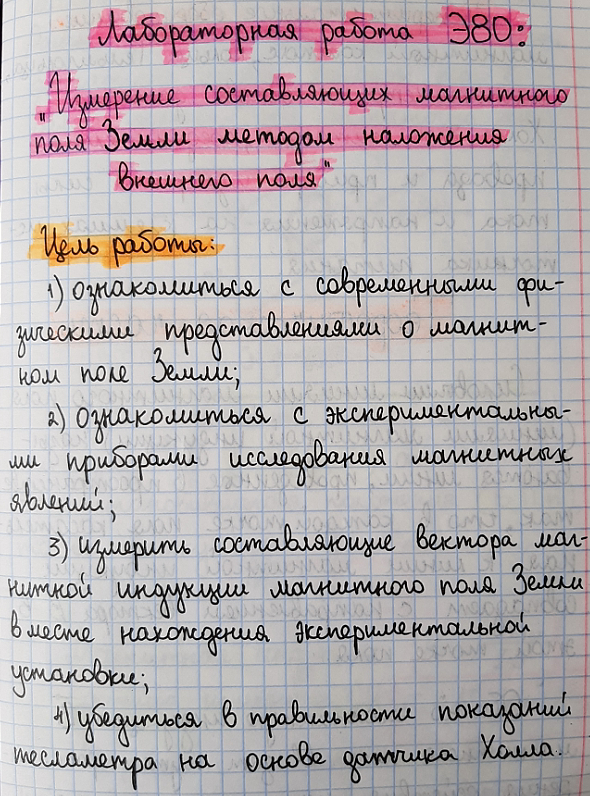 Лабораторная работа Э80:
"Измерение составляющих магнитного
поля Земли методом наложения
внешнего поля"
Цель работы:
1) ознакомиться с современными фи-
зическими представлениями о магнит-
ном поле Земли;
2) ознакомиться с экспериментальны-
ми приборами исследования магнитных
явлений;
3) измерить составляющие вектора маг-
нитной индукции магнитного поля Земли
в месте нахождения экспериментальной
установки;
4) убедиться в правильности показаний
тесламетра на основе датчика Холла.